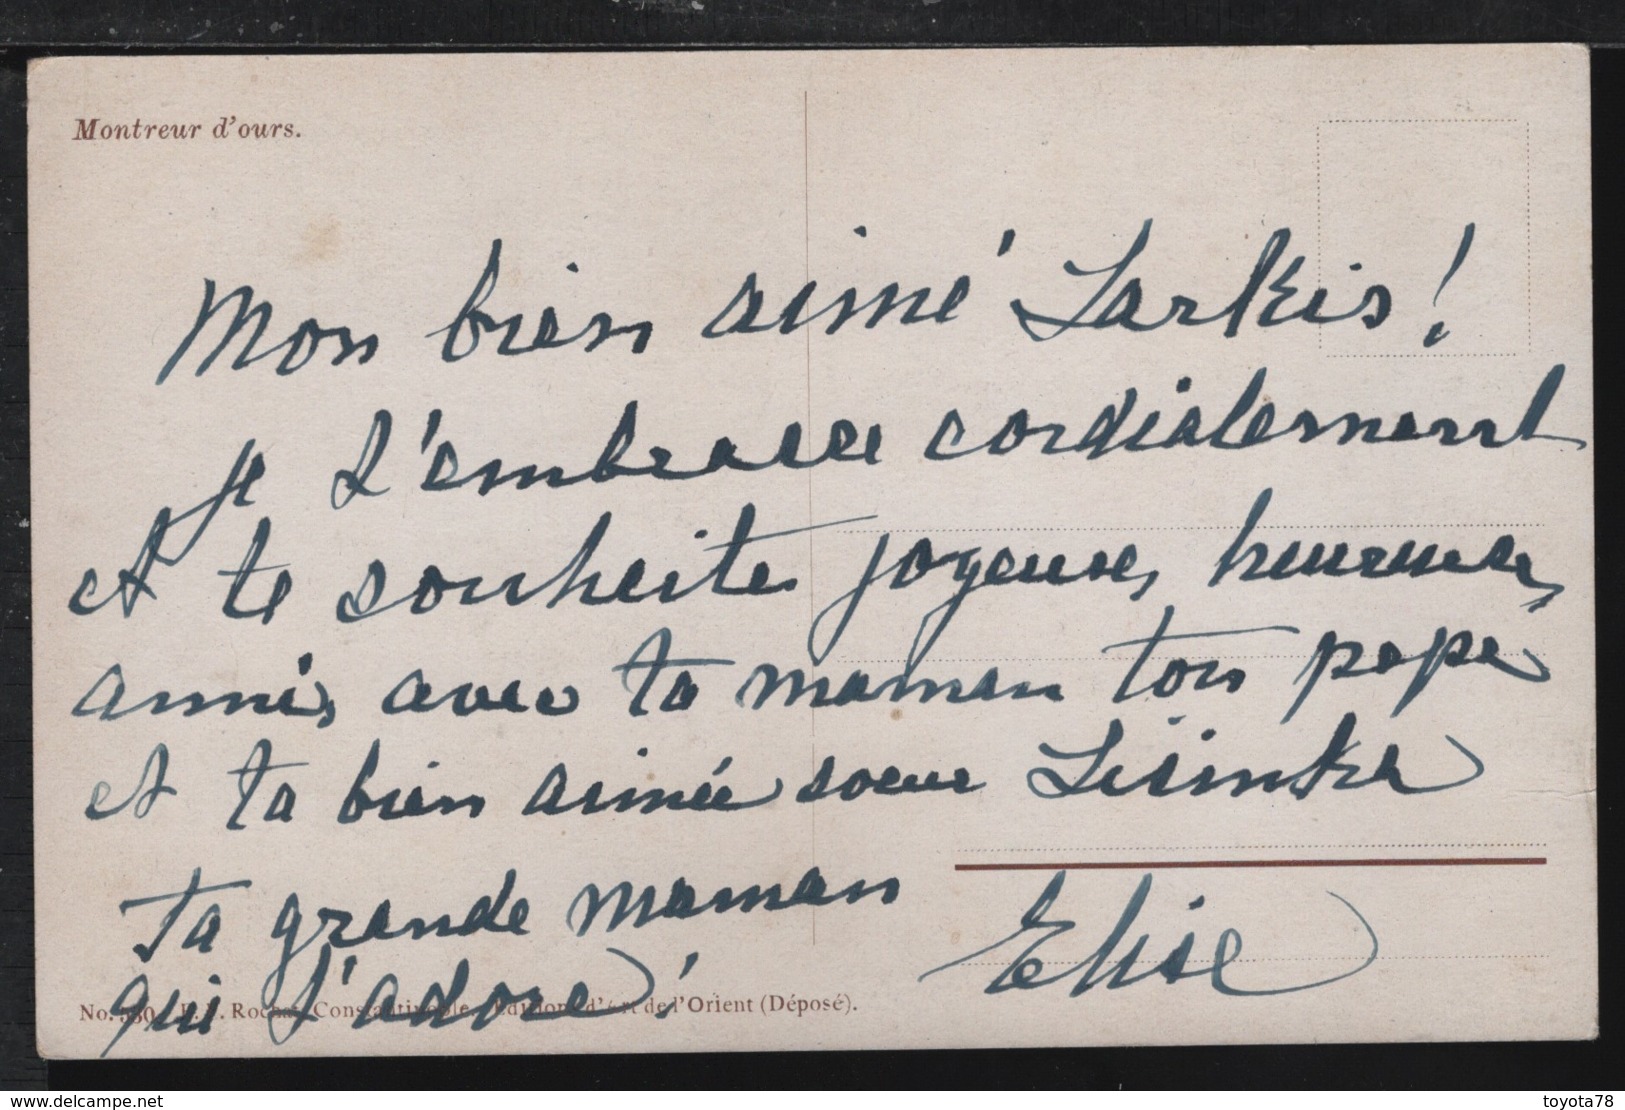 Montreur d'ours.
Mon bien aimé Sarkis!
je t'embrasse cordialement
et te souhaite joyeuse, heureuse,
année, avec ta maman ton papa
et ta bien aimée soeur Lisinka
Ta grande maman Elise
qui t'adore!
No. Constantinople. Edition d'Art de l'Orient (Déposé).
delcampe.net
toyota78